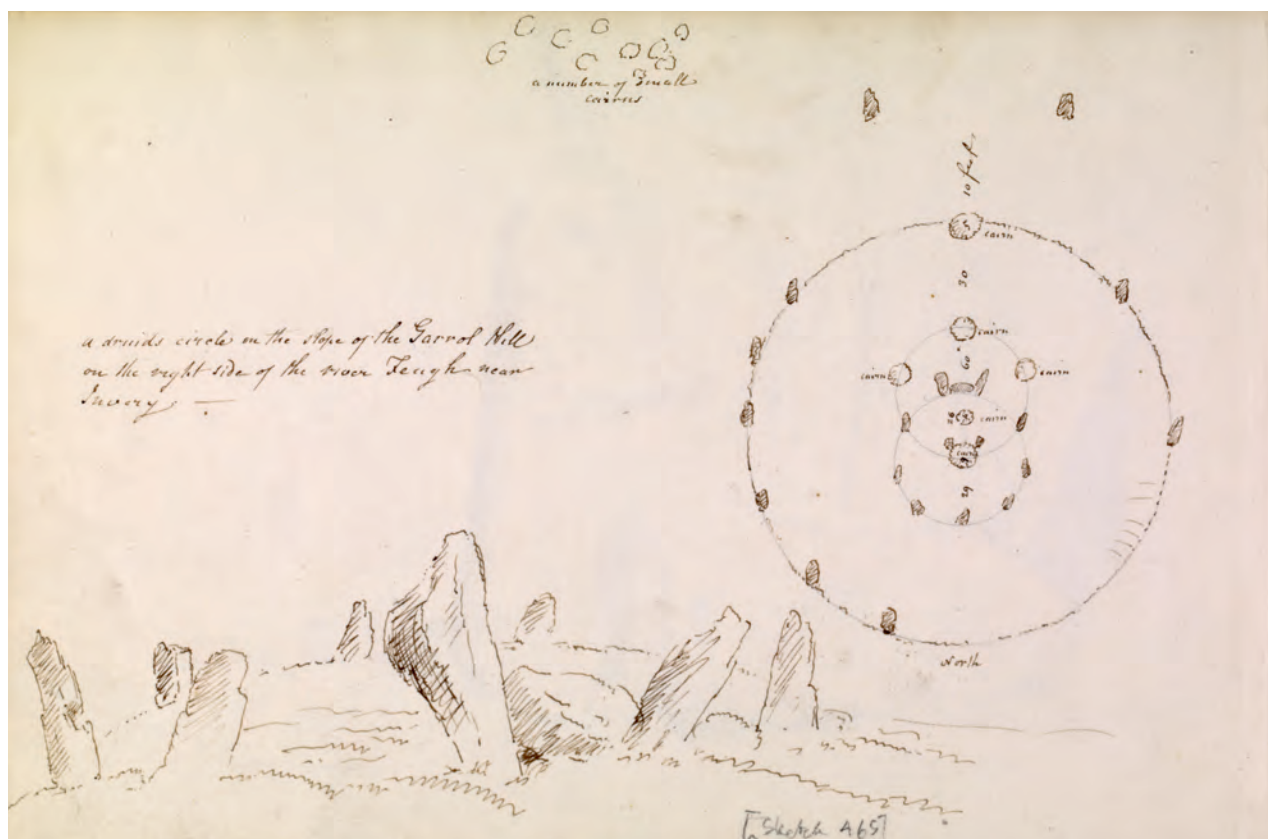 a number of Small
cairns
10 feet
cairn
30
cairn
cairn
cairn
cairn
cairn
29
North
a druids circle on the slope of the Garrol Hill
on the right side of the river Feugh near
Invery; —
[Sketch A65]